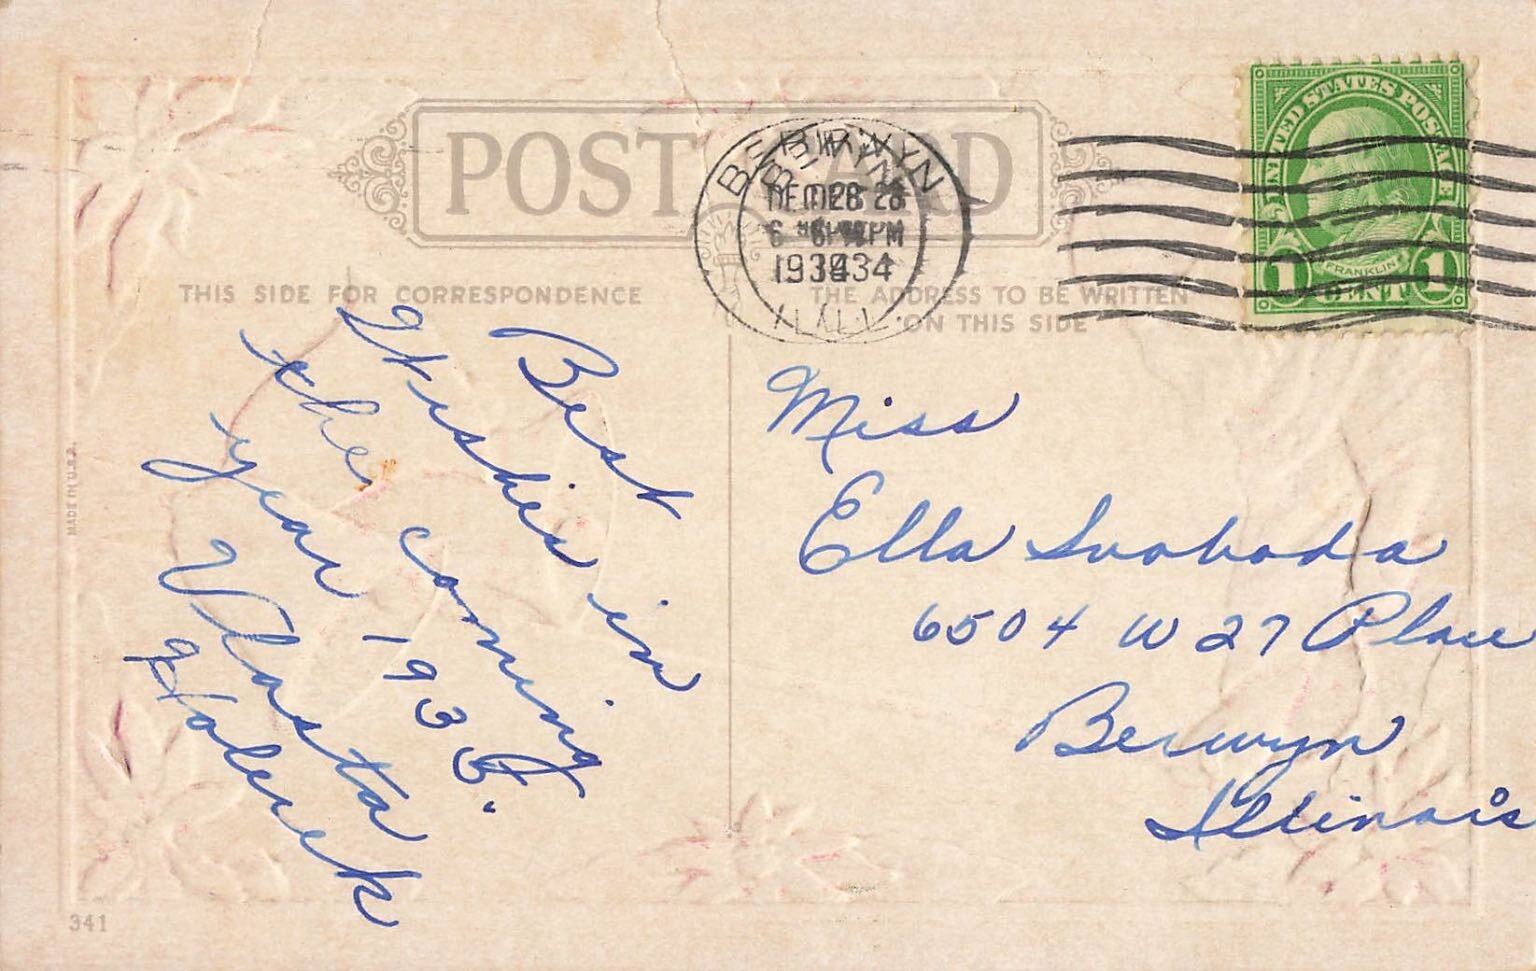 POST CARD
BERWYN
DEC 28
6 PM
1934
ILL.
UNITED STATES POSTAGE
FRANKLIN
1 CENT 1
THIS SIDE FOR CORRESPONDENCE
THE ADDRESS TO BE WRITTEN
ON THIS SIDE
Best
Wishes in
the coming
year 1935.
Vlasta
Miss
Ella Svoboda
6504 W 27 Place
Berwyn
Illinois
MADE IN U.S.A.
341